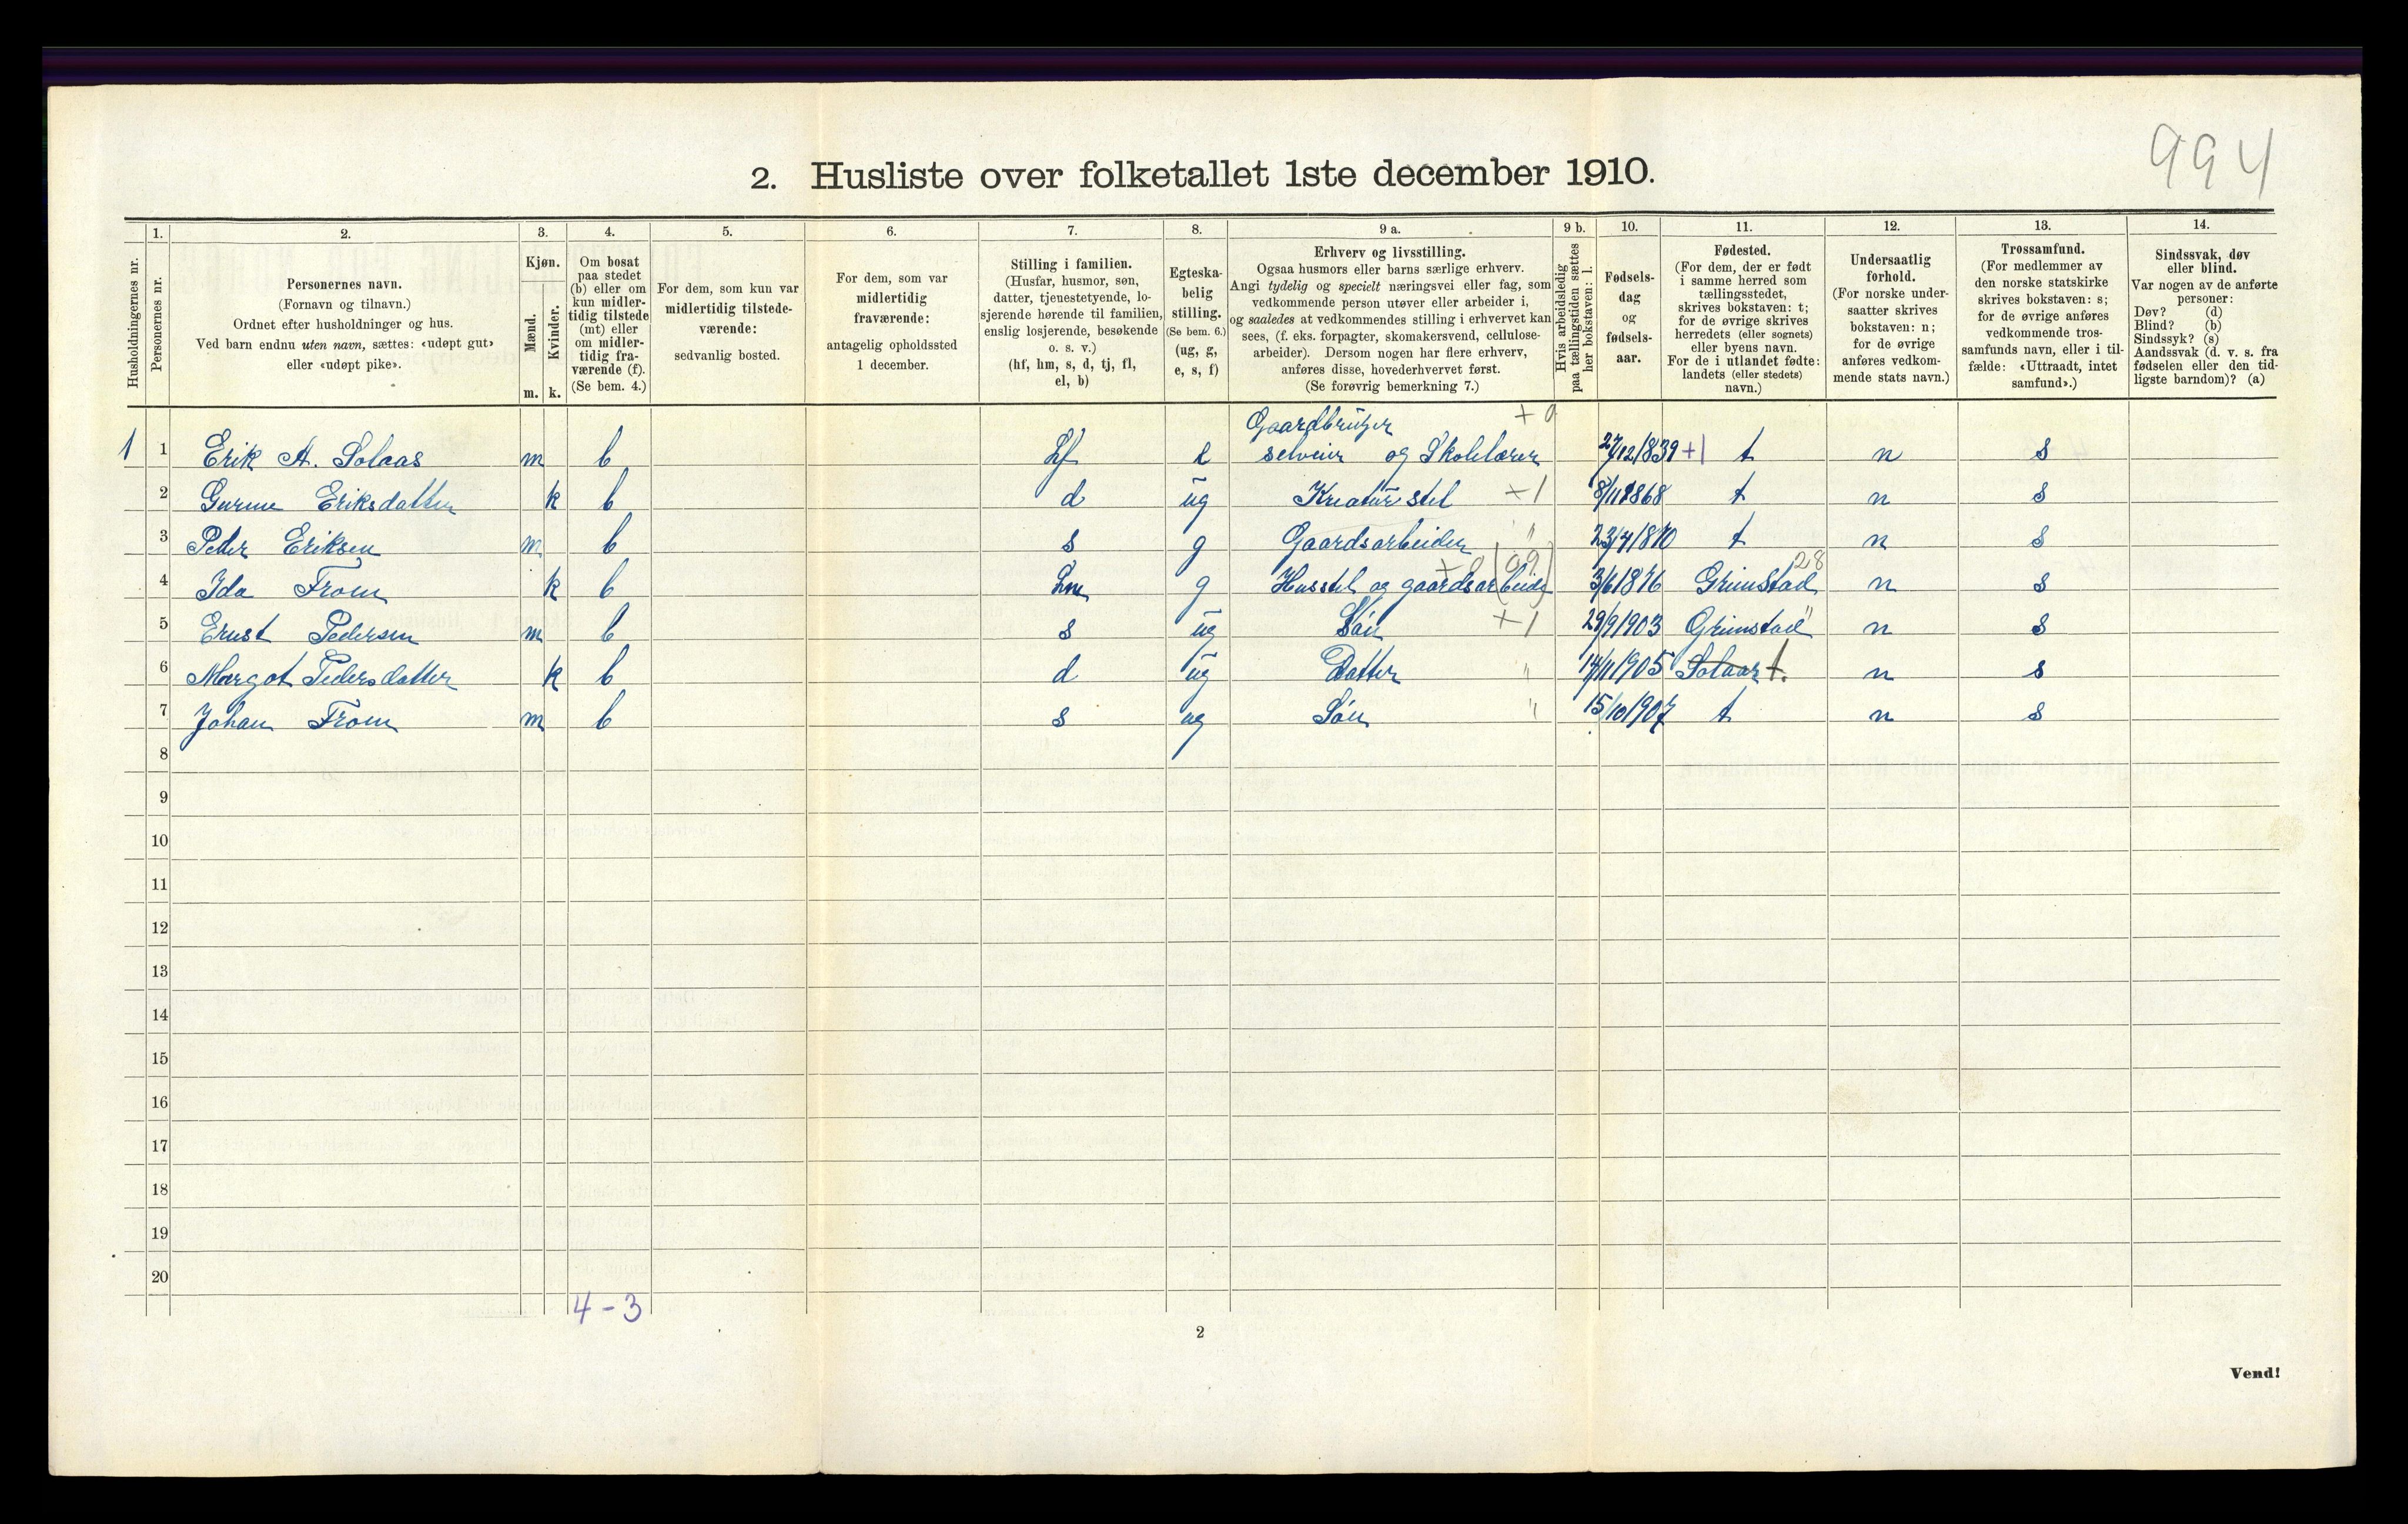 994
2. Husliste over folketallet 1ste december 1910.
Husholdningernes nr.
1.
Personernes nr.
2.
Personernes navn.
(Fornavn og tilnavn.)
Ordnet efter husholdninger og hus.
Ved barn endnu uten navn, sættes: «udøpt gut»
eller «udøpt pike».
3.
Kjøn.
Mænd.
Kvinder.
m. k.
4.
Om bosat
paa stedet
(b) eller om
kun midler-
tidig tilstede
(mt) eller
om midler-
tidig fra-
værende (f).
(Se bem. 4.)
5.
For dem, som kun var
midlertidig tilstede-
værende:
sedvanlig bosted.
6.
For dem, som var
midlertidig
fraværende:
antagelig opholdssted
1 december.
7.
Stilling i familien.
(Husfar, husmor, søn,
datter, tjenestetyende, lo-
sjerende hørende til familien,
enslig losjerende, besøkende
o. s. v.)
(hf, hm, s, d, tj, fl,
el, b)
8.
Egteska-
belig
stilling.
(Se bem. 6.)
(ug, g,
e, s, f)
9 a.
Erhverv og livsstilling.
Ogsaa husmors eller barns særlige erhverv.
Angi tydelig og specielt næringsvei eller fag, som
vedkommende person utøver eller arbeider i,
og saaledes at vedkommendes stilling i erhvervet kan
sees, (f. eks. forpagter, skomakersvend, cellulose-
arbeider). Dersom nogen har flere erhverv,
anføres disse, hovederhvervet først.
(Se forøvrig bemerkning 7.)
9 b.
Hvis arbeidsledig
paa tællingstiden sættes
her bokstaven: l.
10.
Fødsels-
dag
og
fødsels-
aar.
11.
Fødested.
(For dem, der er født
i samme herred som
tællingsstedet,
skrives bokstaven: t;
for de øvrige skrives
herredets (eller sognets)
eller byens navn.
For de i utlandet fødte:
landets (eller stedets)
navn.)
12.
Undersaatlig
forhold.
(For norske under-
saatter skrives
bokstaven: n;
for de øvrige
anføres vedkom-
mende stats navn.)
13.
Trossamfund.
(For medlemmer av
den norske statskirke
skrives bokstaven: s;
for de øvrige anføres
vedkommende tros-
samfunds navn, eller i til-
fælde: «Uttraadt, intet
samfund».)
14.
Sindssvak, døv
eller blind.
Var nogen av de anførte
personer:
Døv? (d)
Blind? (b)
Sindssyk? (s)
Aandssvak (d. v. s. fra
fødselen eller den tid-
ligste barndom)? (a)
Gaardbruger + 0
1 1 Erik A. Solaas m b hf e selveier og Skolelærer 27/12 1839 +1 t n s
2 Gurine Eriksdatter k b d ug Kreaturstel +1 8/11 1868 t n s
3 Peder Eriksen m b s g Gaardsarbeider " 23/7 1870 t n s
+ 0 (09) 28
4 Ida From k b hm g Husstel og gaardsarbeide 3/6 1876 Grimstad n s
5 Ernst Pedersen m b s ug Søn +1 29/9 1903 Grimstad " n s
6 Margot Pedersdatter k b d ug Datter " 14/11 1905 Solaas t. n s
7 Johan From m b s ug Søn " 15/10 1907 t n s
8
9
10
11
12
13
14
15
16
17
18
19
20
4-3
2
Vend!